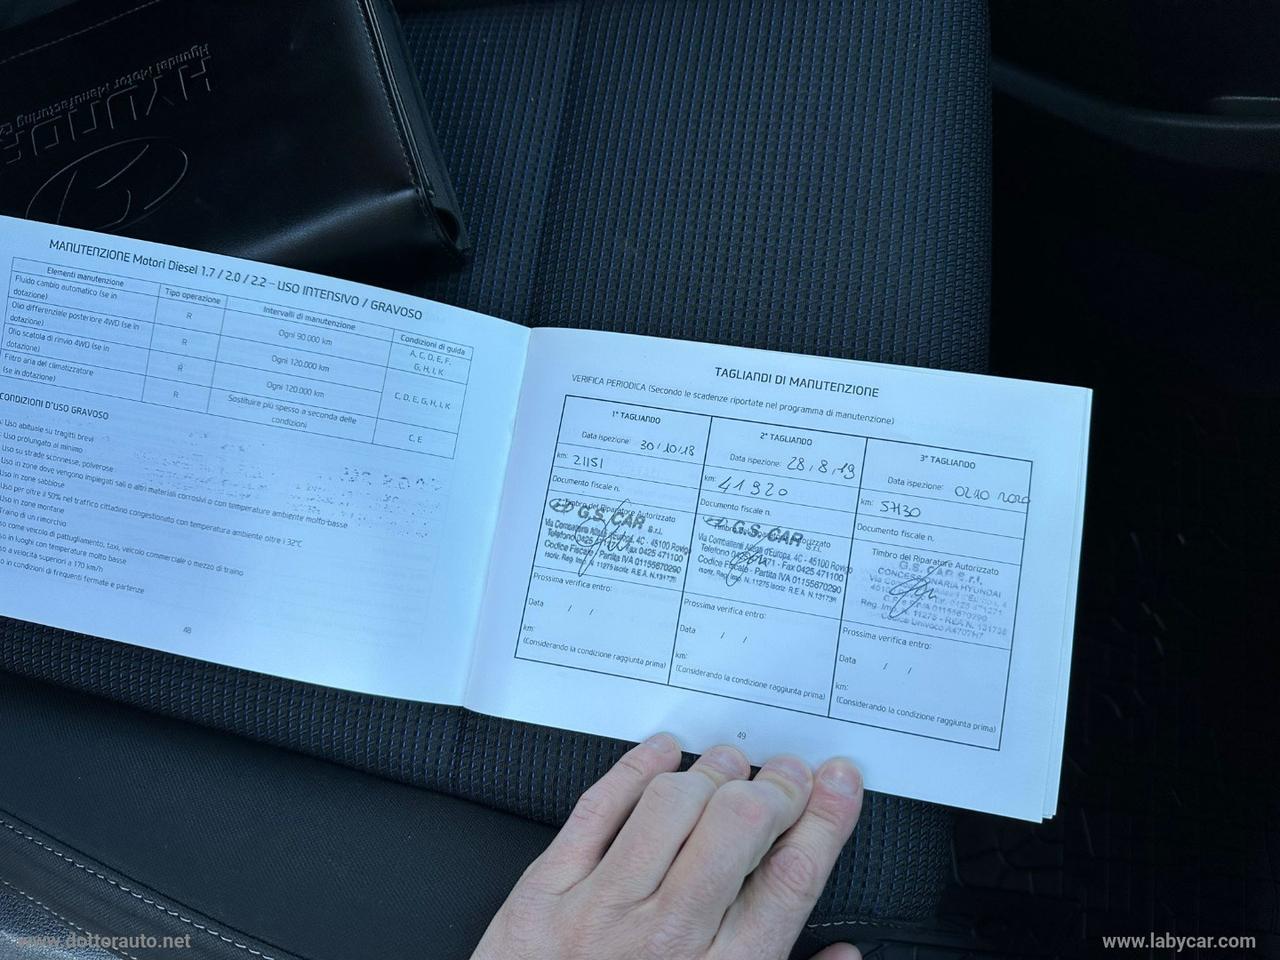 HYUNDAI
Hyundai Motor Manufacturing
MANUTENZIONE Motori Diesel 1.7 / 2.0 / 2.2 – USO INTENSIVO / GRAVOSO
Elementi manutenzione Tipo operazione Intervalli di manutenzione Condizioni di guida
Fluido cambio automatico (se in dotazione) R Ogni 90.000 km A, C, D, E, F, G, H, I, K
Olio differenziale posteriore 4WD (se in dotazione) R Ogni 120.000 km
Olio scatola di rinvio 4WD (se in dotazione) R Ogni 120.000 km C, D, E, G, H, I, K
Filtro aria del climatizzatore (se in dotazione) R Sostituire più spesso a seconda delle condizioni C, E
CONDIZIONI D'USO GRAVOSO
Uso abituale su tragitti brevi
Uso prolungato al minimo
Uso su strade sconnesse, polverose
Uso in zone dove vengono impiegati sali o altri materiali corrosivi o con temperature ambiente molto basse
Uso in zone sabbiose
Uso per oltre il 50% nel traffico cittadino congestionato con temperatura ambiente oltre i 32°C
Uso in zone montane
Traino di un rimorchio
Uso come veicolo di pattugliamento, taxi, veicolo commerciale o mezzo di traino
in luoghi con temperature molto basse
a velocità superiori a 170 km/h
in condizioni di frequenti fermate e partenze
48
TAGLIANDI DI MANUTENZIONE
VERIFICA PERIODICA (Secondo le scadenze riportate nel programma di manutenzione)
1° TAGLIANDO
Data ispezione: 30/10/18
km: 21151
Documento fiscale n.
Timbro del Riparatore Autorizzato
G.S. CAR s.r.l.
Via Combattenti Alleati d'Europa, 4C - 45100 Rovigo
Telefono 0425 Fax 0425 471100
Codice Fiscale - Partita IVA 01155670290
Iscriz. Reg. Imp. N. 11275 Iscriz. R.E.A. N.131738
Prossima verifica entro:
Data / /
km:
(Considerando la condizione raggiunta prima)
2° TAGLIANDO
Data ispezione: 28,8,19
km: 41920
Documento fiscale n.
Timbro del Riparatore Autorizzato
G.S. CAR s.r.l.
Via Combattenti Alleati d'Europa, 4C - 45100 Rovigo
Telefono 0425 - Fax 0425 471100
Codice Fiscale - Partita IVA 01155670290
Iscriz. Reg. Imp. N. 11275 Iscriz. R.E.A. N.131738
Prossima verifica entro:
Data / /
km:
(Considerando la condizione raggiunta prima)
3° TAGLIANDO
Data ispezione: 0210 2020
km: 57130
Documento fiscale n.
Timbro del Riparatore Autorizzato
G.S. CAR s.r.l.
CONCESSIONARIA HYUNDAI
Reg. Imp. N. 11275 - REA N. 131738
Codice Univoco A4707H7
Prossima verifica entro:
Data / /
km:
(Considerando la condizione raggiunta prima)
49
www.dottorauto.net
www.labycar.com